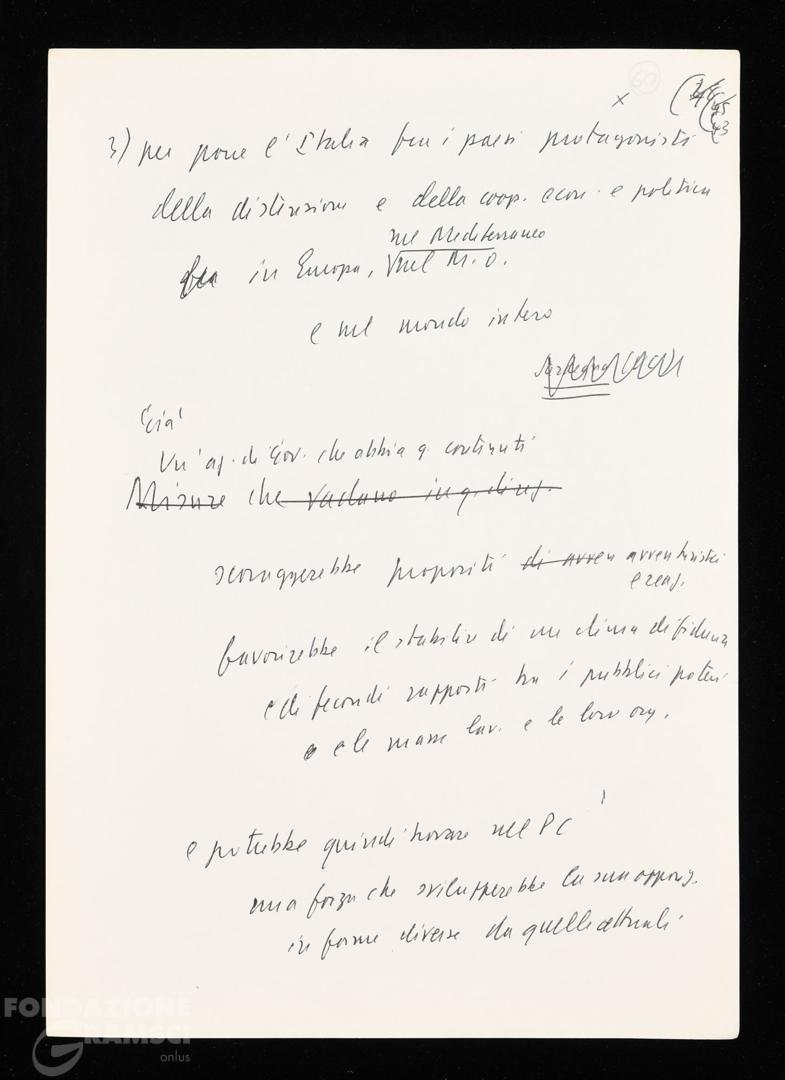 60
x
3) per porre l'Italia fra i paesi protagonisti
della distensione e della coop. econ. e politica
nel Mediterraneo
fra in Europa, nel M.O.
e nel mondo intero
Già
Un' az. di Gov. che abbia q. contenuti
Misure che vadano in q. direz.
scoraggerebbe propositi di avven avventuristici
e reaz.
favorirebbe il stabilirsi di un clima di fiducia
e di fecondi rapporti tra i pubblici poteri
e e le masse lav. e le loro org.
e potrebbe quindi trovare nel PCI
una forza che svilupperebbe la sua oppos.
in forme diverse da quelle attuali
FONDAZIONE
GRAMSCI
onlus